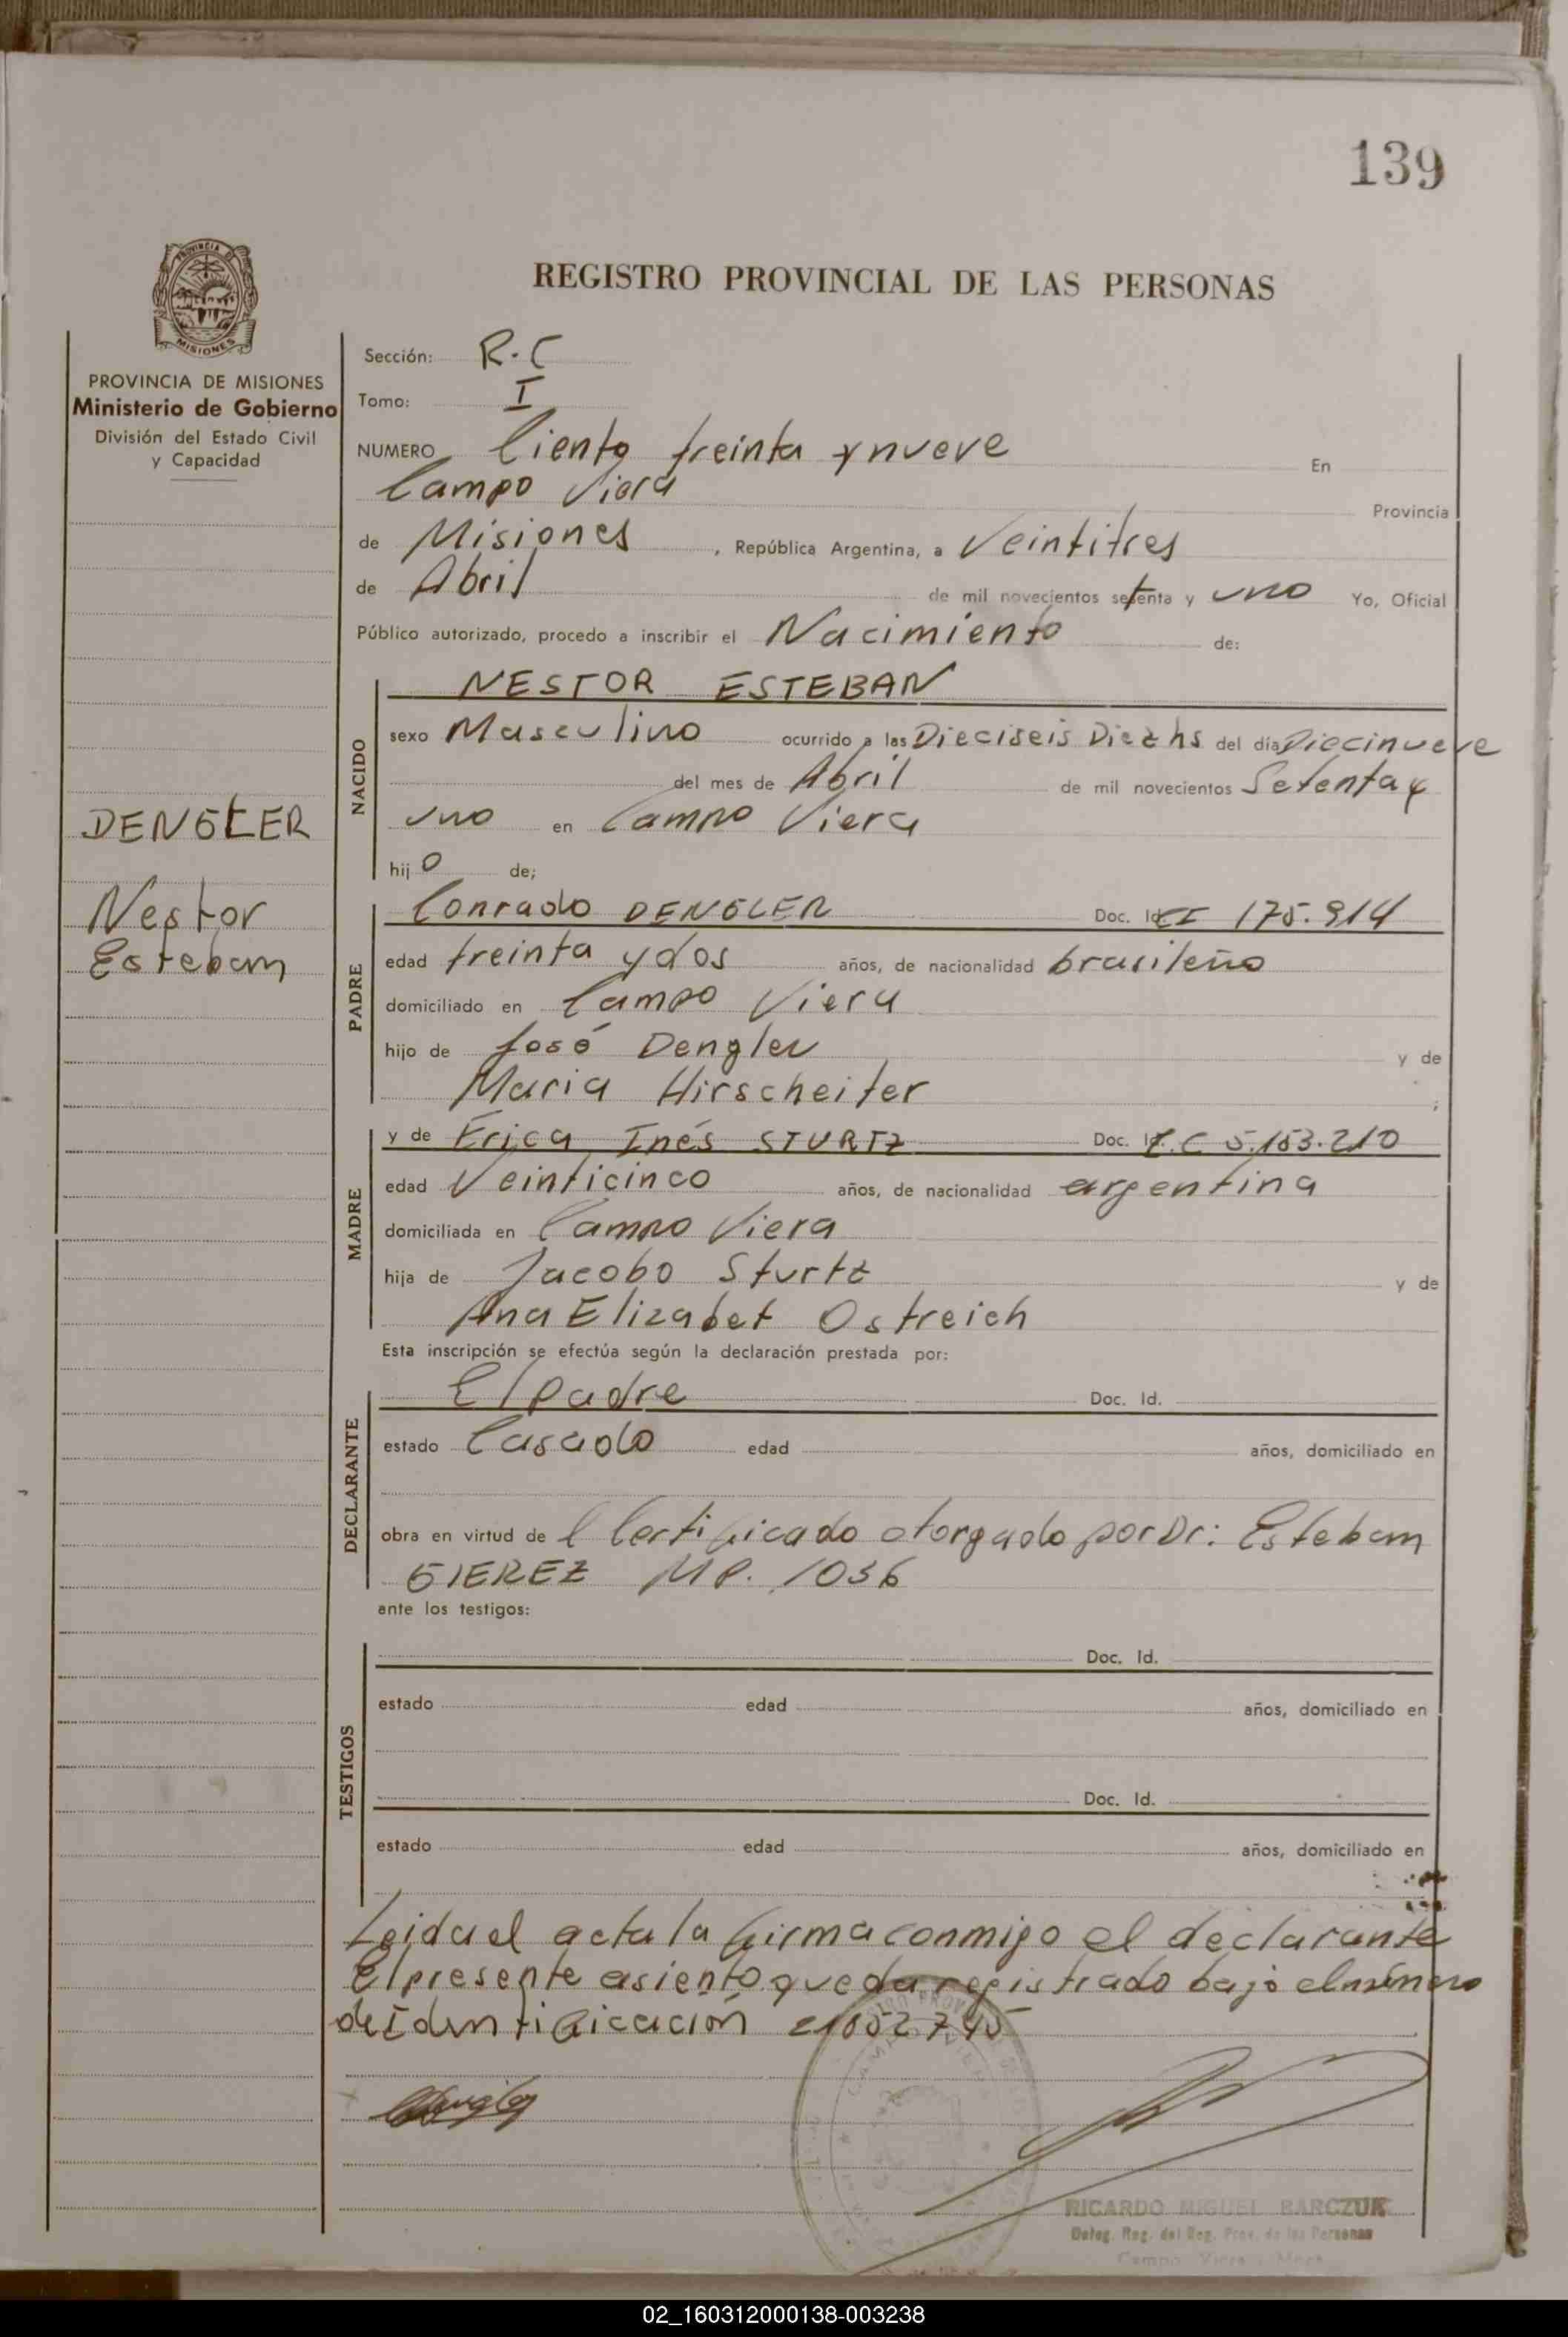 139
REGISTRO PROVINCIAL DE LAS PERSONAS
PROVINCIA DE MISIONES
Ministerio de Gobierno
División del Estado Civil
y Capacidad
DENGLER
Nestor
Esteban
Sección: R.C
Tomo: I
NUMERO Ciento treinta y nueve En
Campo Viera Provincia
de Misiones, República Argentina, a Veintitres
de Abril de mil novecientos setenta y uno Yo, Oficial
Público autorizado, procedo a inscribir el Nacimiento de:
NACIDO
NESTOR ESTEBAN
sexo Masculino ocurrido a las Dieciseis Diez hs del día Diecinueve
del mes de Abril de mil novecientos Setenta y
uno en Campo Viera
hijo de;
PADRE
Conrado DENGLER Doc. Id. CI 175.914
edad treinta y dos años, de nacionalidad brasileño
domiciliado en Campo Viera
hijo de José Dengler y de
Maria Hirscheiter ;
MADRE
y de Erica Inés STURTZ Doc. Id. L.C 5.153.210
edad Veinticinco años, de nacionalidad argentina
domiciliada en Campo Viera
hija de Jacobo Sturtz y de
Ana Elizabet Ostreich
Esta inscripción se efectúa según la declaración prestada por:
DECLARANTE
El padre Doc. Id.
estado Casado edad años, domiciliado en
obra en virtud de l Certificado otorgado por Dr: Esteban
GIEREZ MP. 1036
ante los testigos:
TESTIGOS
Doc. Id.
estado edad años, domiciliado en
Doc. Id.
estado edad años, domiciliado en
Leida el acta la firma conmigo el declarante
El presente asiento queda registrado bajo el número
de Identificación 21052745
RICARDO MIGUEL BARCZUK
Deleg. Reg. del Reg. Prov. de las Personas
Campo Viera - Mnes
02_160312000138-003238